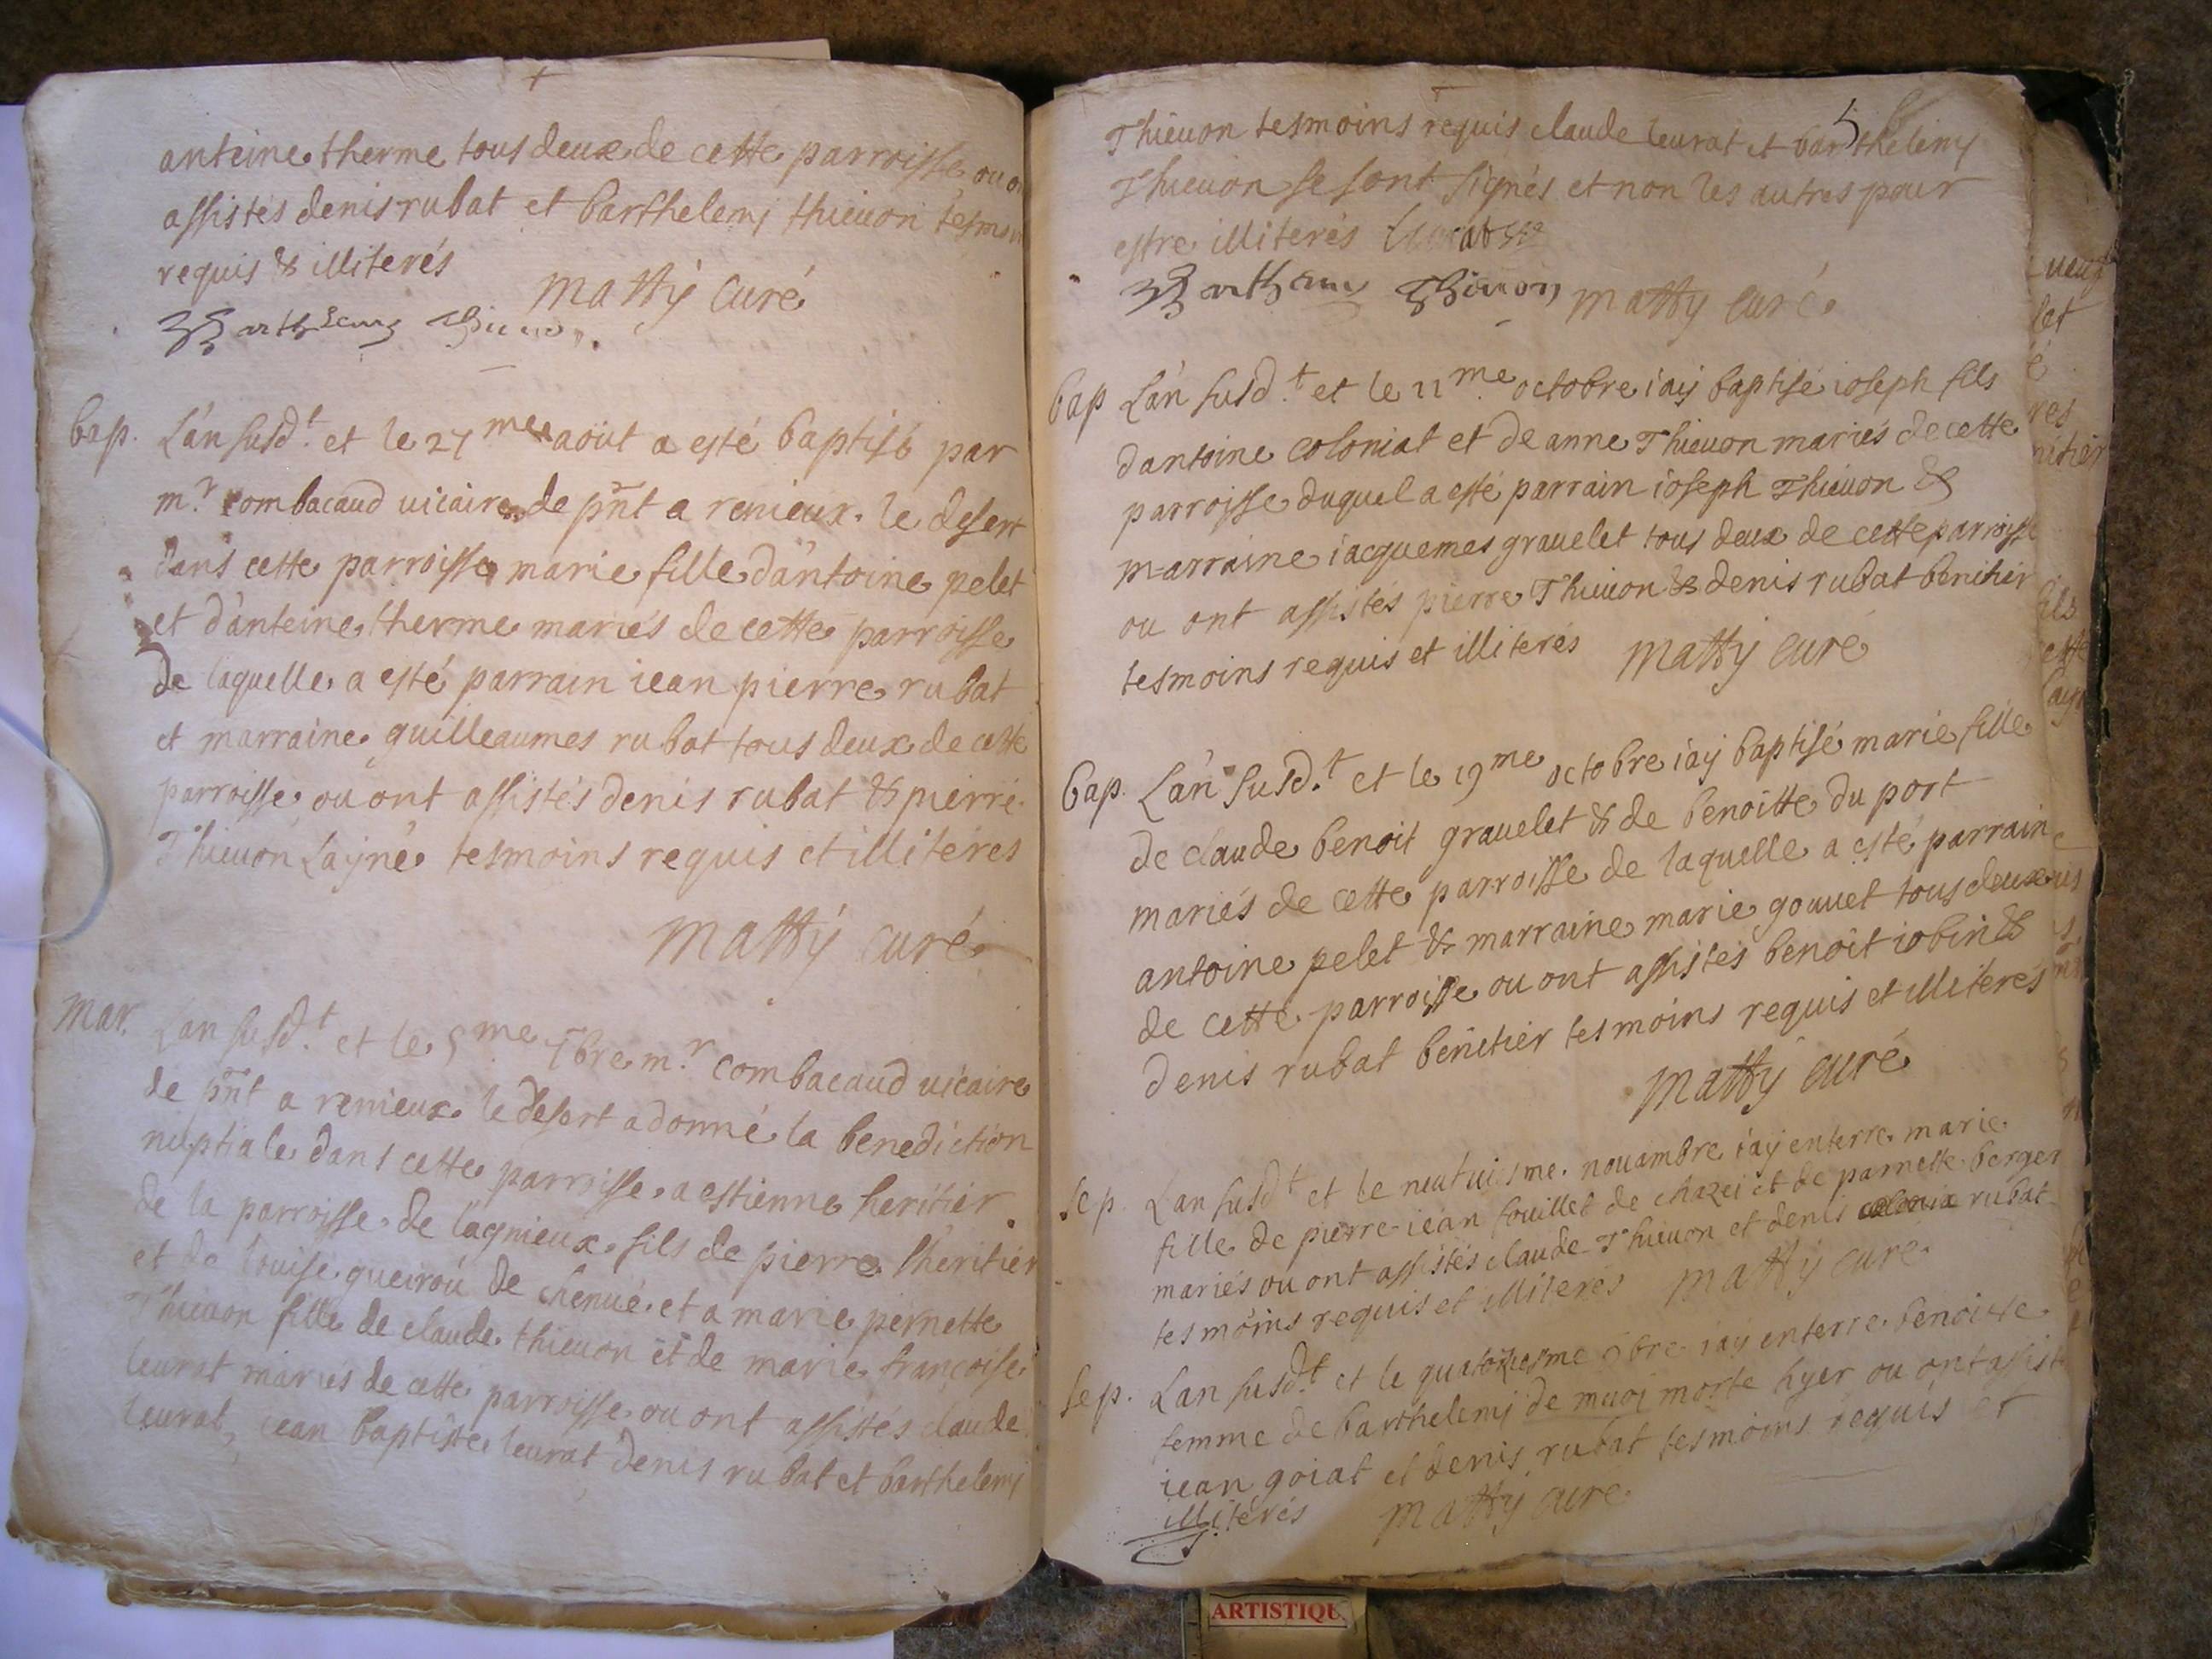 anteine therme tous deux de cette parroisse ou on
assistés denis rubat et barthelemj thieuon tesmoin
requis & illiterés
Mattÿ Curé
Barthelemy Thieuon
bap. L'an susd.t et le 27me aout a esté baptisé par
mr. Combacaud uicaire de pn̄t a remieux le desert
dans cette parroisse marie fille d'antoine pelet
et d'anteine therme mariés de cette parroisse
de laquelle a esté parrain iean pierre rubat
et marraine guilleaumes rubat tous deux de cette
parroisse ou ont assistés denis rubat & pierre
Thieuon Layné tesmoins requis et illiterés
Mattÿ curé
Mar. Lan susd.t et le 5me 7bre mr. combacaud uicaire
de pn̄t a remieux le desert a donné la benediction
nuptiale dans cette parroisse a estienne heritier
de la parroisse de lagnieux fils de pierre lheritier
et de louise queiroû de chenué et a marie pernette
Thieuon fille de claude thieuon et de marie françoise
leurat mariés de cette parroisse ou ont assistés claude
leurat, iean baptiste leurat denis rubat et barthelemj
Thieuon tesmoins requis claude leurat et barthelemj
5
Thieuon se sont signés et non les autres pour
estre illiterés Leurat
Barthelemy Thieuon Mattÿ curé
bap L'an susd.t et le 11me octobre i'aÿ baptisé ioseph fils
dantoine coloniat et de anne Thieuon mariés de cette
parroisse duquel a esté parrain ioseph Thieuon &
marraine iacquemes grauelet tous deux de cette parroisse
ou ont assistés pierre Thieuon & denis rubat benitier
tesmoins requis et illiterés Mattÿ curé
bap. L'an susd.t et le 19me octobre i'aÿ baptisé marie fille
de claude benoit grauelet & de benoitte du port
mariés de cette parroisse de laquelle a esté parrain
antoine pelet & marraine marie gouuet tous deux
de cette parroisse ou ont assistés benoit iobin &
denis rubat benitier tesmoins requis et illiterés
Mattÿ curé
Sep. Lan susd.t et le nuutuiesme nouambre i'aÿ enterre marie
fille de pierre iean fouillet de chazei et de parnette berger
mariés ou ont assistés claude Thieuon et denis rubat
tesmoins requis et illiterés Mattÿ curé
Sep. Lan susd.t et le quatoziesme 9bre i'aÿ enterre benoitte
femme de barthelemj de muoj morte hyer ou ont assisté
iean goiat et denis rubat tesmoins requis et
illiterés Mattÿ curé
ARTISTIQU